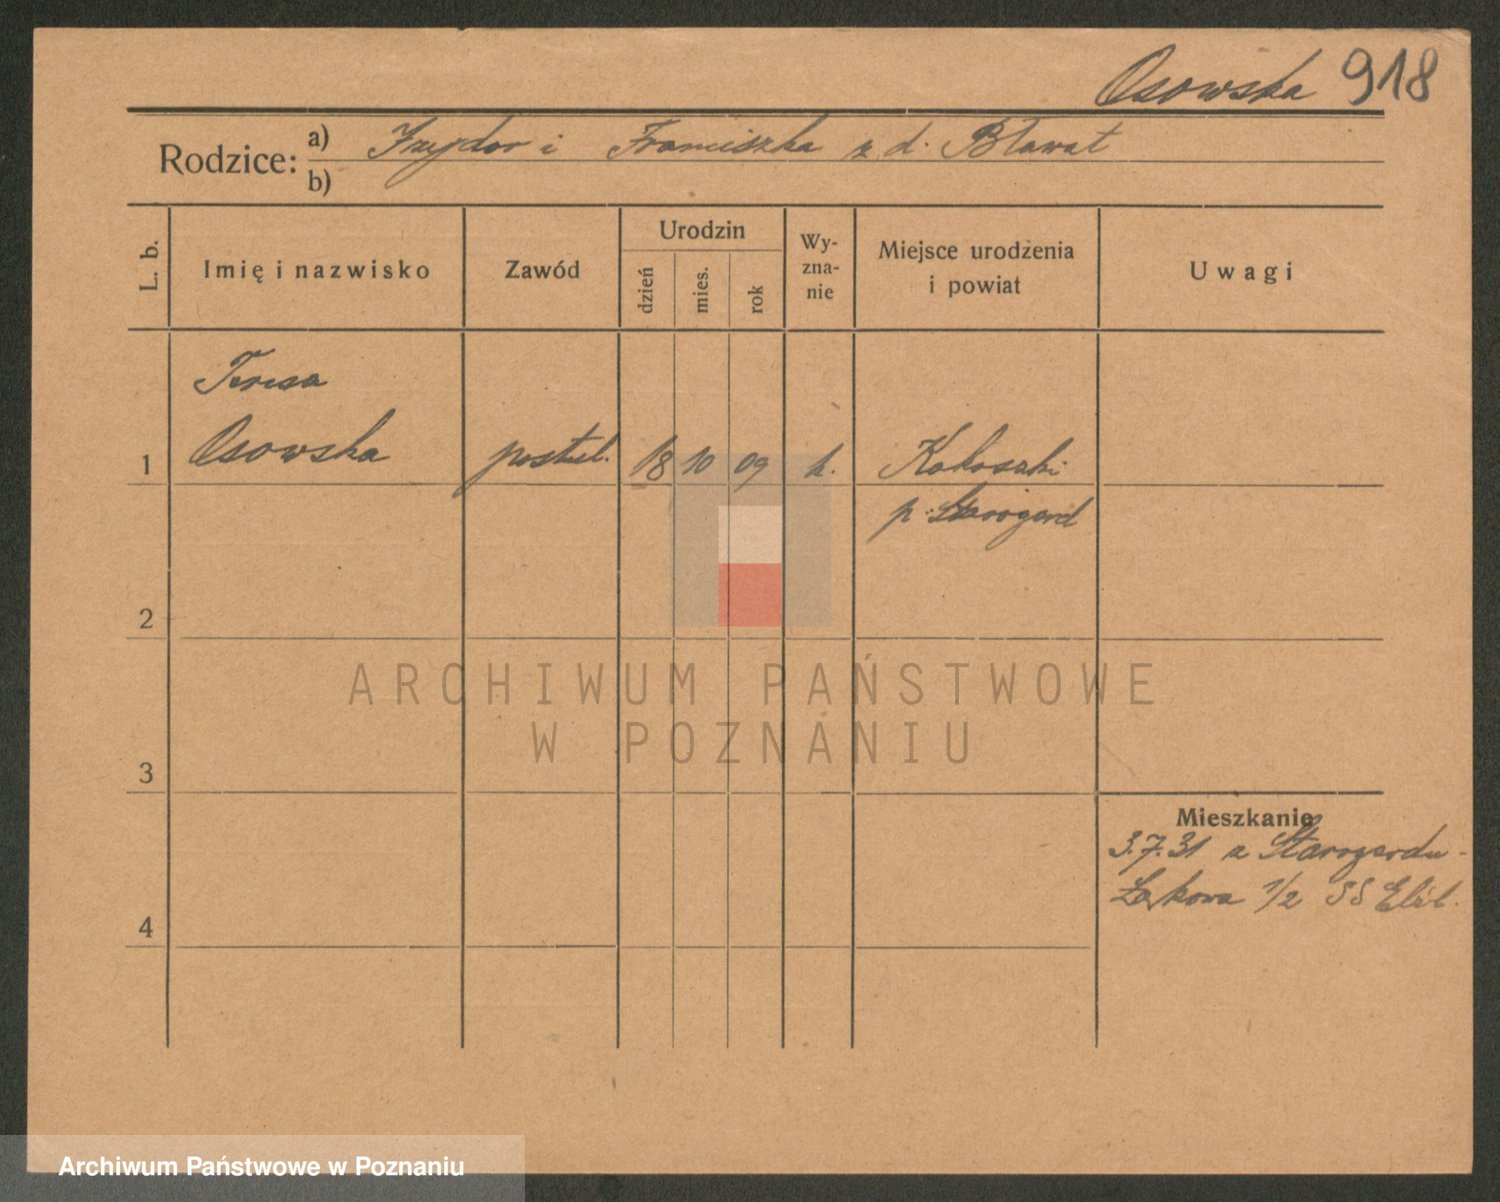 Osowska 918
Rodzice: a) Izydor i Franciszka z d. Bławat
b)
L. b. Imię i nazwisko Zawód Urodzin dzień mies. rok Wyzna-nie Miejsce urodzenia i powiat Uwagi
Teresa
1 Osowska postul. 18 10 09 k. Kokoszki
p. Starogard
2
ARCHIWUM PAŃSTWOWE
W POZNANIU
3
Mieszkanie
3.7.31 z Starogardu-
Łąkowa 1/2 SS Elżb.
4
Archiwum Państwowe w Poznaniu